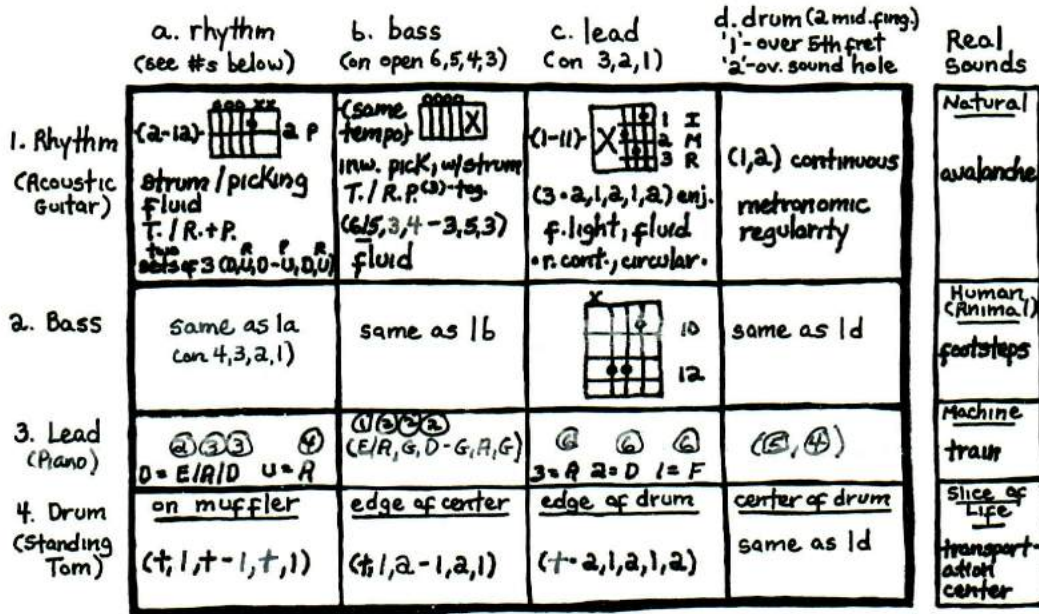 a. rhythm
(see #s below)
b. bass
(on open 6,5,4,3)
c. lead
(on 3,2,1)
d. drum (2 mid. fing.)
'1'-over 5th fret
'2'-ov. sound hole
Real
Sounds
1. Rhythm
(Acoustic
Guitar)
ooo xx
(2-12) 2 P
strum/picking
fluid
T./R.+P.
two R P R
sets of 3 (D,U,D-U,D,U)
(same
tempo)
oooo
X
inw. pick, w/strum
T./R.P.(3)-tog.
(6/5,3,4-3,5,3)
fluid
(1-11) X 1 I
2 M
3 R
(3·2,1,2,1,2) enj.
f. light, fluid
·r. cont., circular·
(1,2) continuous
metronomic
regularity
Natural
avalanche
2. Bass
same as 1a
(on 4,3,2,1)
same as 1b
x
10
12
same as 1d
Human
(Animal)
footsteps
3. Lead
(Piano)
2 3 3 4
D=E/A/D U=A
1 3 2 2
(E/A,G,D-G,A,G)
6 6 6
3=A 2=D 1=F
(5,4)
Machine
train
4. Drum
(Standing
Tom)
on muffler
(t,1,t-1,t,1)
edge of center
(t,1,2-1,2,1)
edge of drum
(t·2,1,2,1,2)
center of drum
same as 1d
Slice of
Life
transport-
ation
center